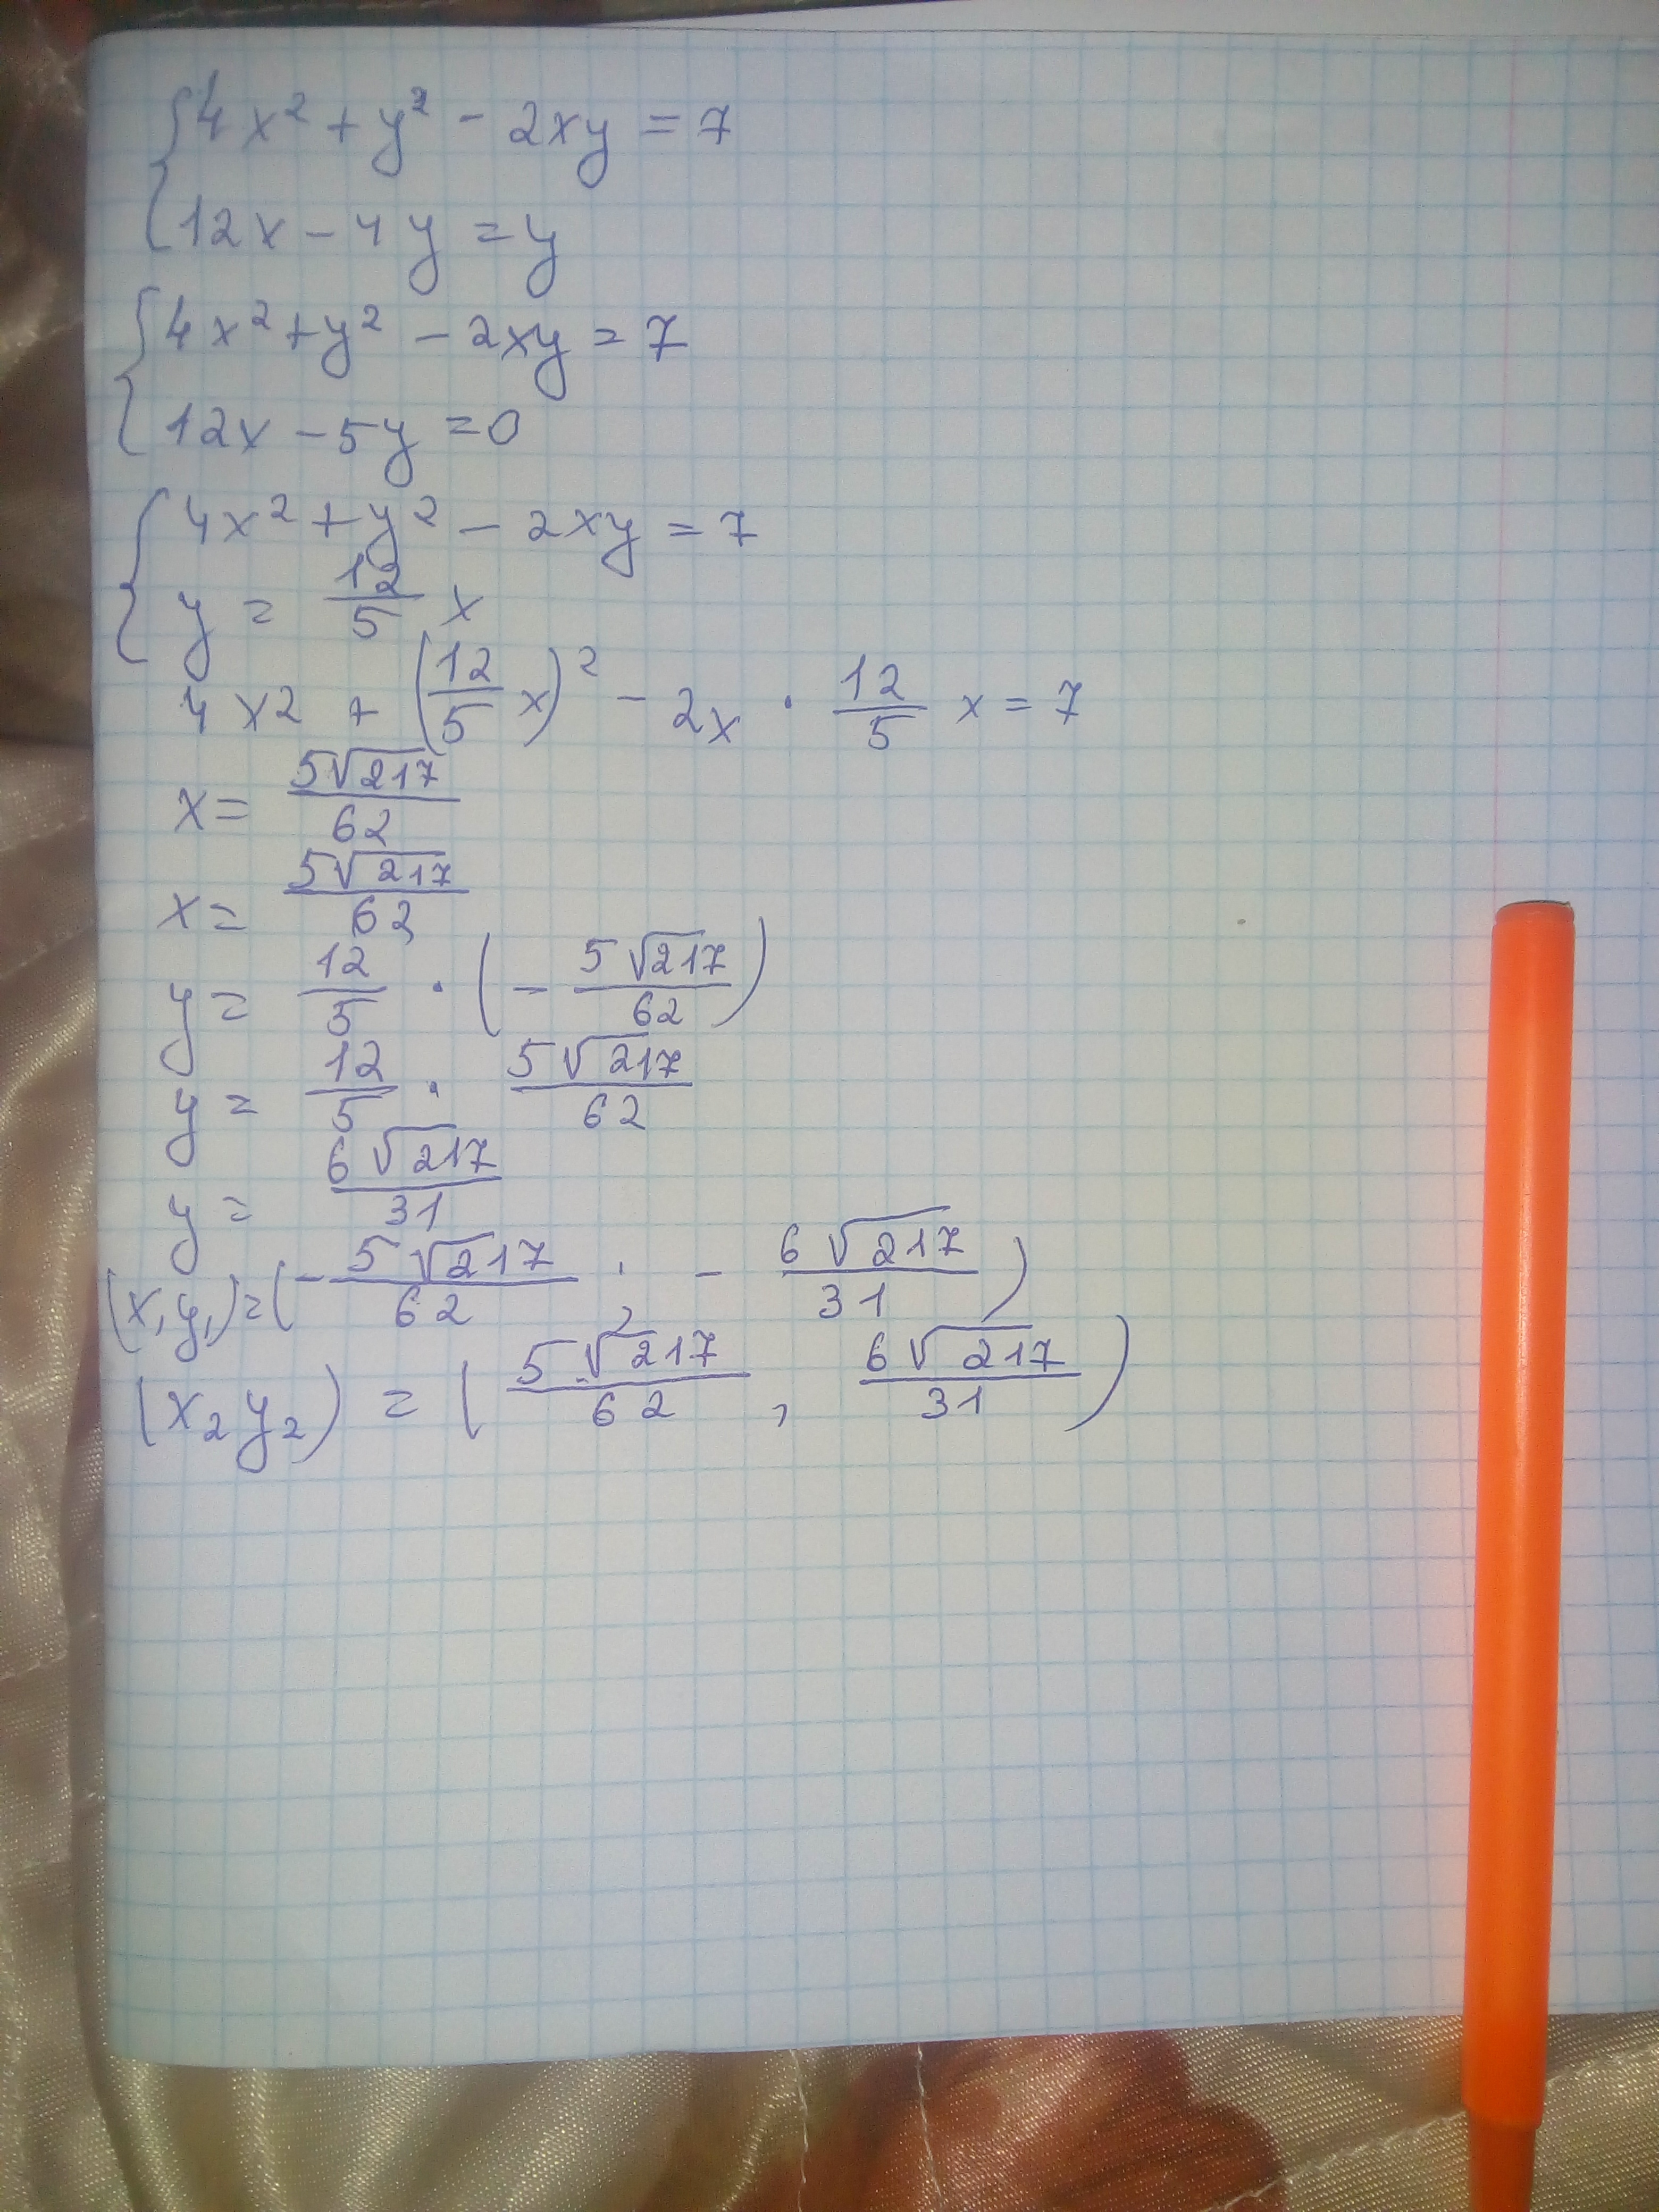 {4x² + y² - 2xy = 7
{12x - 4y = y
{4x² + y² - 2xy = 7
{12x - 5y = 0
{4x² + y² - 2xy = 7
{y = 12/5 x
4x2 + (12/5 x)² - 2x · 12/5 x = 7
x = 5√217/62
x = 5√217/62
y = 12/5 · (- 5√217/62)
y = 12/5 · 5√217/62
y = 6√217/31
(x₁y₁) = (- 5√217/62 ; - 6√217/31)
(x₂y₂) = (5√217/62 , 6√217/31)